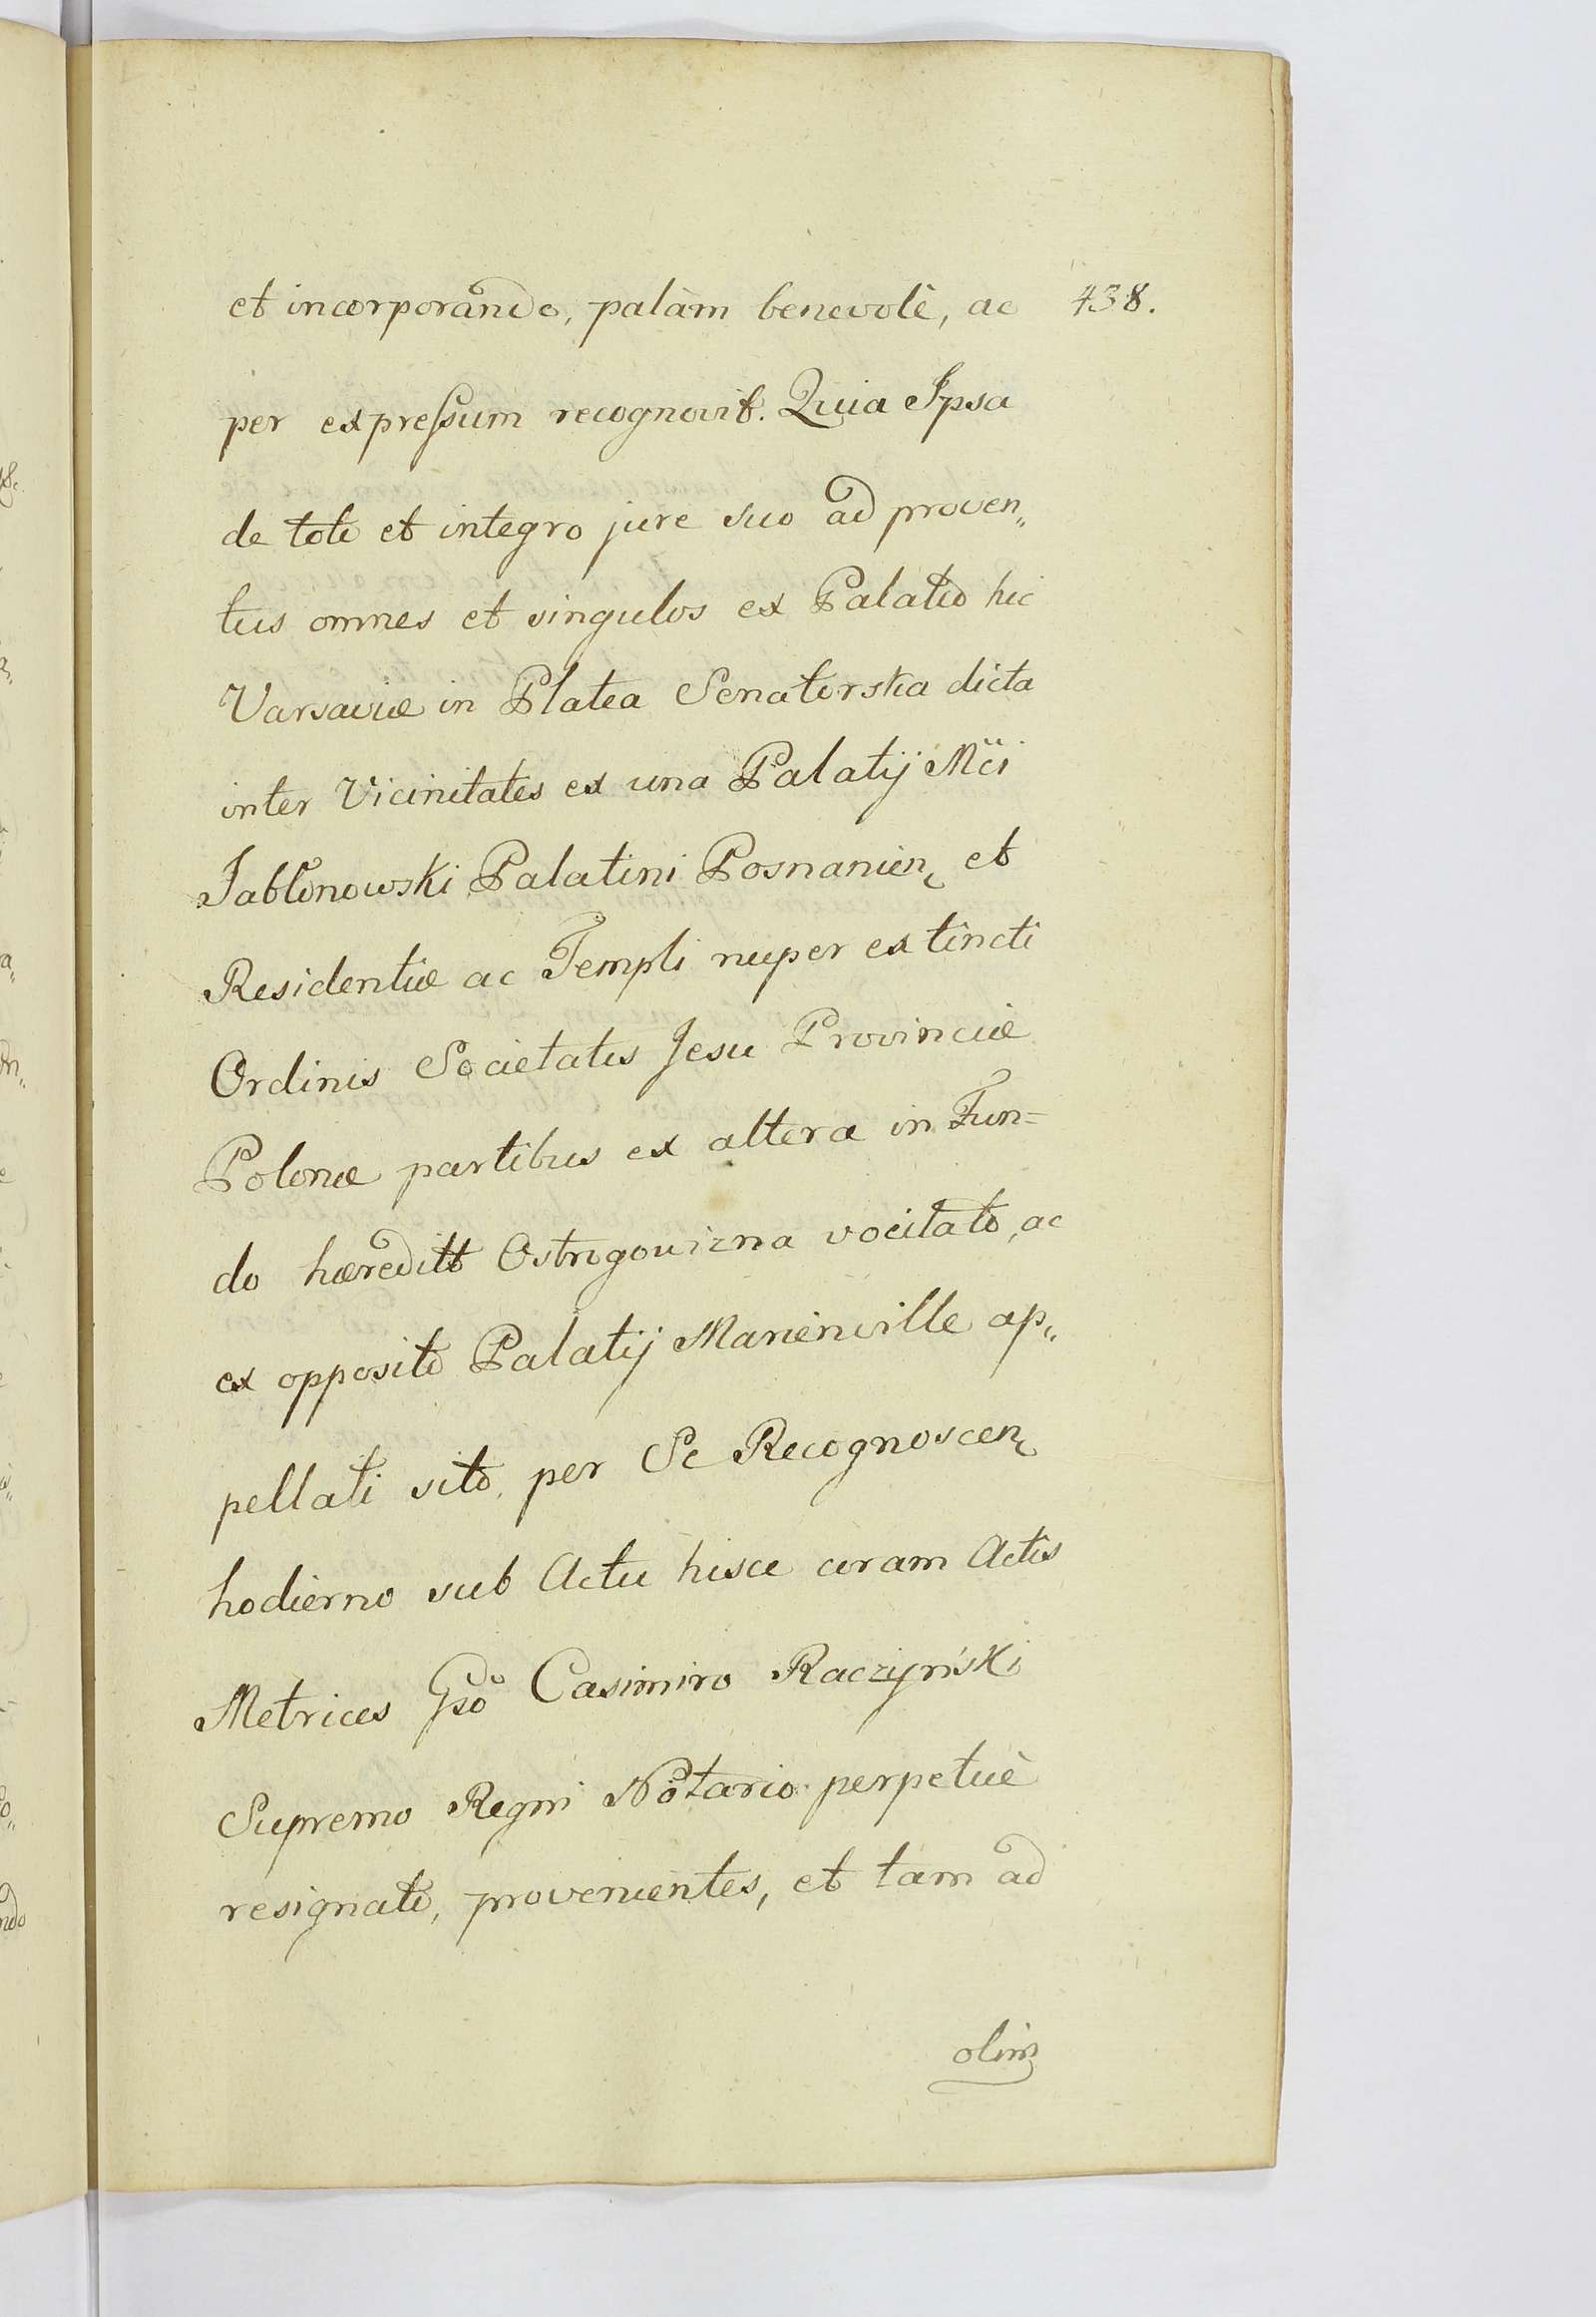 et incorporando, palàm benevolè, ac 438.
per expreſsum recognovit. Quia Ipsa
de toto et integro jure suo ad proven„
tus omnes et singulos ex Palatio hic
Varsaviæ in Platea Senatorska dicta
inter Vicinitates ex una Palatij Mci
Jabłonowski Palatini Posnanien et
Residentiæ ac Templi nuper extincti
Ordinis Societatis Jesu Provinciæ
Polonæ partibus ex altera in Fun=
do hæreditt Ostrogowizna vocitato, ac
ex opposito Palatij Marienville ap„
pellati sito, per Se Recognoscen
hodierno sub Actu hisce coram Actis
Metrices Gso Casimiro Raczyński
Supremo Regni Notario perpetuè
resignato, provenientes, et tam ad
olim